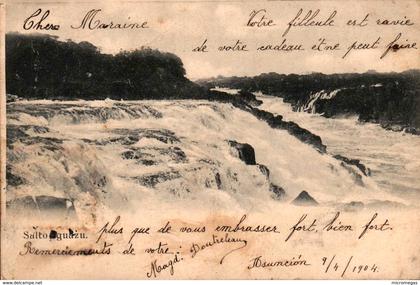 Cher Maraine
Votre filleule est ravie
de votre cadeau et ne peut faire
Salto Iguazu.
plus que de vous embrasser fort, fort.
Remerciements de votre
Magd:
Asunción 9/4/1904.
www.micromegas.com